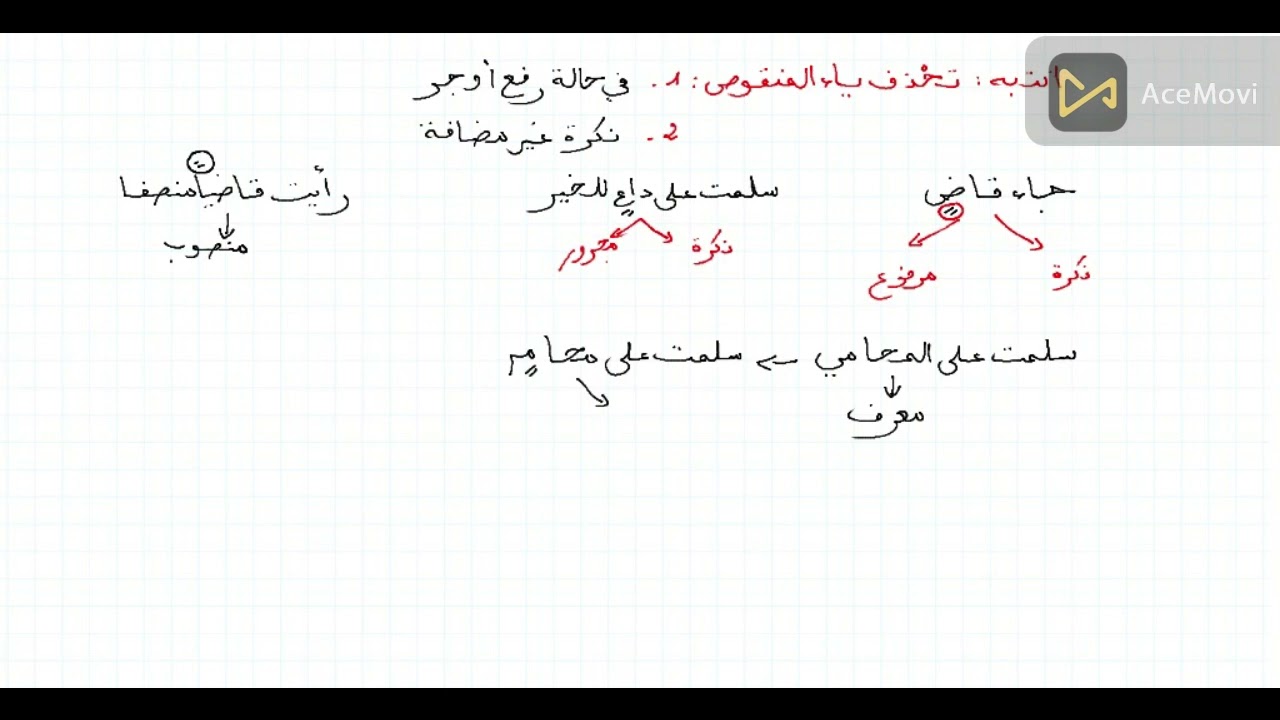 انتبه : تحْذف ياء المنقوص : 1. في حالة رفع أو جر
2. نكرة غير مضافة
جاء قاضٍ
سلمت على داعٍ للخير
رأيت قاضياً منصفا
نكرة
مرفوع
نكرة
مجرور
منصوب
سلمت على المحامي ← سلمت على محامٍ
معرف
AceMovi